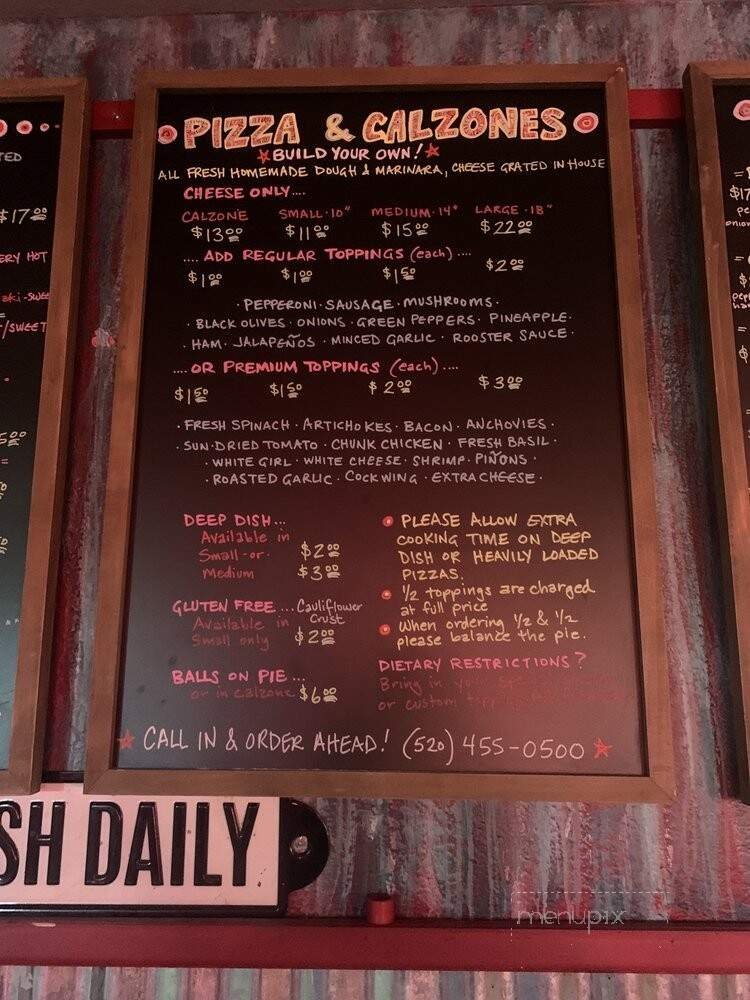 PIZZA & CALZONES
BUILD YOUR OWN!
ALL FRESH HOMEMADE DOUGH & MARINARA, CHEESE GRATED IN HOUSE
CHEESE ONLY....
CALZONE SMALL·10" MEDIUM·14" LARGE·18"
$13.00 $11.00 $15.00 $22.00
.... ADD REGULAR TOPPINGS (each) ....
$1.00 $1.00 $1.50 $2.00
· PEPPERONI · SAUSAGE · MUSHROOMS ·
· BLACK OLIVES · ONIONS · GREEN PEPPERS · PINEAPPLE ·
· HAM · JALAPEÑOS · MINCED GARLIC · ROOSTER SAUCE ·
.... OR PREMIUM TOPPINGS (each) ....
$1.50 $1.50 $2.00 $3.00
· FRESH SPINACH · ARTICHOKES · BACON · ANCHOVIES ·
· SUN·DRIED TOMATO · CHUNK CHICKEN · FRESH BASIL ·
· WHITE GIRL · WHITE CHEESE · SHRIMP · PIÑONS ·
· ROASTED GARLIC · COCKWING · EXTRA CHEESE ·
DEEP DISH...
Available in
Small -or- $2.00
Medium $3.00
GLUTEN FREE ... Cauliflower Crust
Available in
Small only $2.00
BALLS ON PIE ...
or in calzone $6.00
PLEASE ALLOW EXTRA
COOKING TIME ON DEEP
DISH OR HEAVILY LOADED
PIZZAS.
1/2 toppings are charged
at full price
When ordering 1/2 & 1/2
please balance the pie.
DIETARY RESTRICTIONS?
Bring in your
or custom
CALL IN & ORDER AHEAD! (520) 455-0500
$17.00
ERY HOT
SH DAILY
menupix